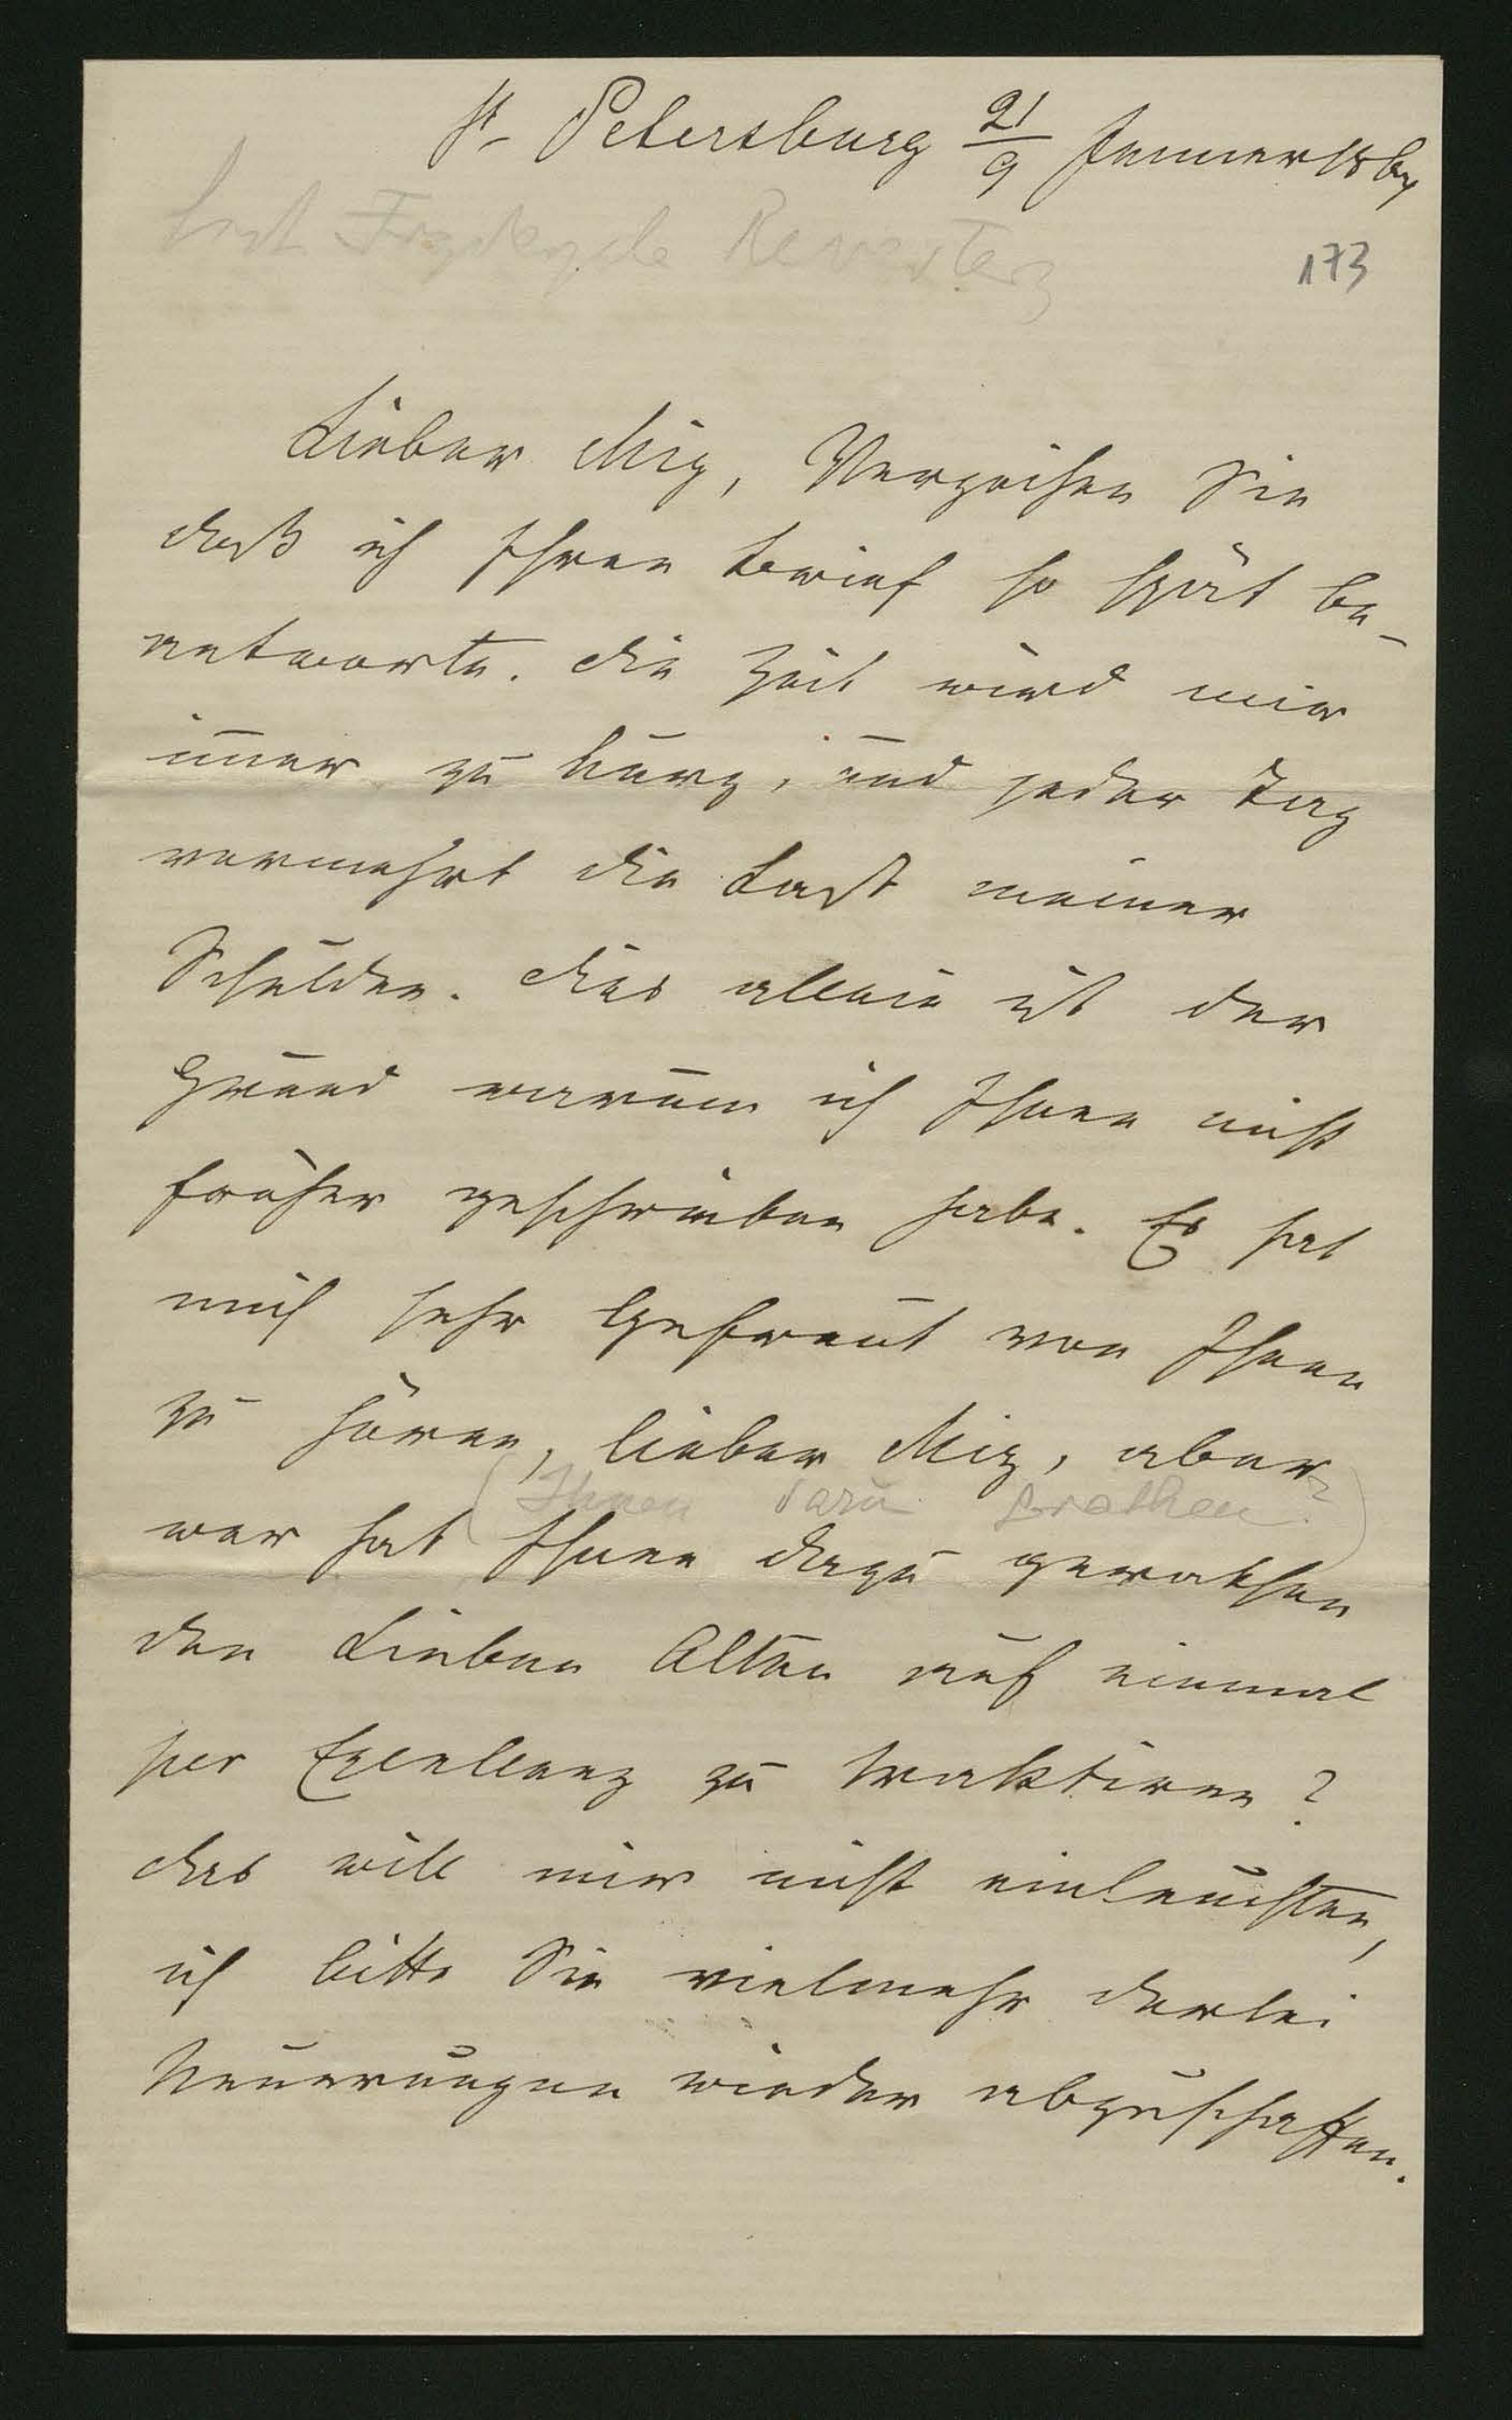 St. Petersburg 21/9 Januar 1867
List Fryderyka Revertery
173
Lieber Mig, Verzeihen Sie
daß ich Ihren Brief so spät be-
antworte. Die Zeit wird mir
im̄er zu kurz, und jeder Tag
vermehrt die Last meiner
Schulden. Dies allein ist der
Grund warum ich Ihnen nicht
früher geschrieben habe. Es hat
mich sehr gefreut von Ihnen
zu hören, lieber Mig, aber
(Ihnen dazu        )
wer hat Ihnen dazu gerathen
den Lieben Alten auf einmal
per Excellenz zu traktiren?
das will mir nicht einleuchten,
ich bitte Sie vielmehr derlei
Neuerungen wieder abzuschaffen.